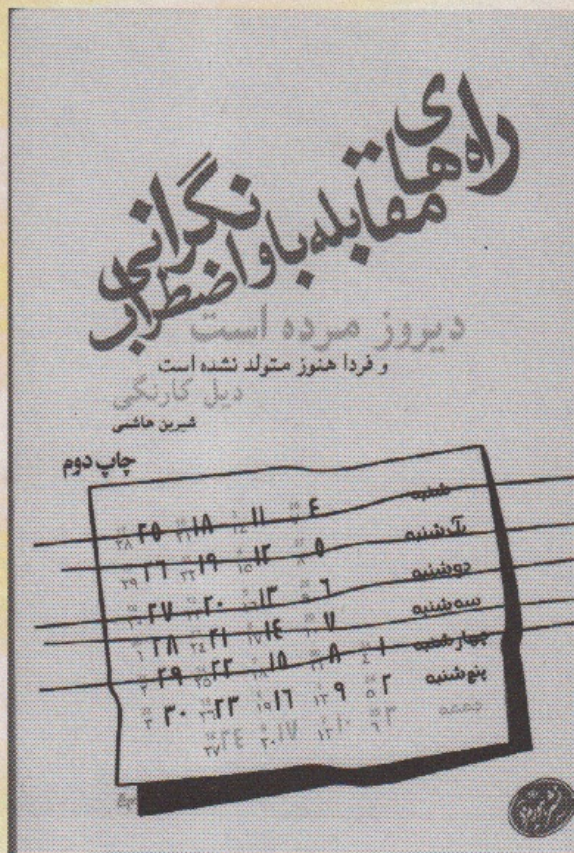 راه‌های
مقابله با نگرانی
و اضطراب
دیروز مرده است
و فردا هنوز متولد نشده است
دیل کارنگی
شیرین هاشمی
چاپ دوم
شنبه ۴ ۱۱ ۱۸ ۲۵
یک‌شنبه ۵ ۱۲ ۱۹ ۲۶
دوشنبه ۶ ۱۳ ۲۰ ۲۷
سه‌شنبه ۷ ۱۴ ۲۱ ۲۸
چهارشنبه ۱ ۸ ۱۵ ۲۲ ۲۹
پنج‌شنبه ۲ ۹ ۱۶ ۲۳ ۳۰
جمعه ۳ ۱۰ ۱۷ ۲۴